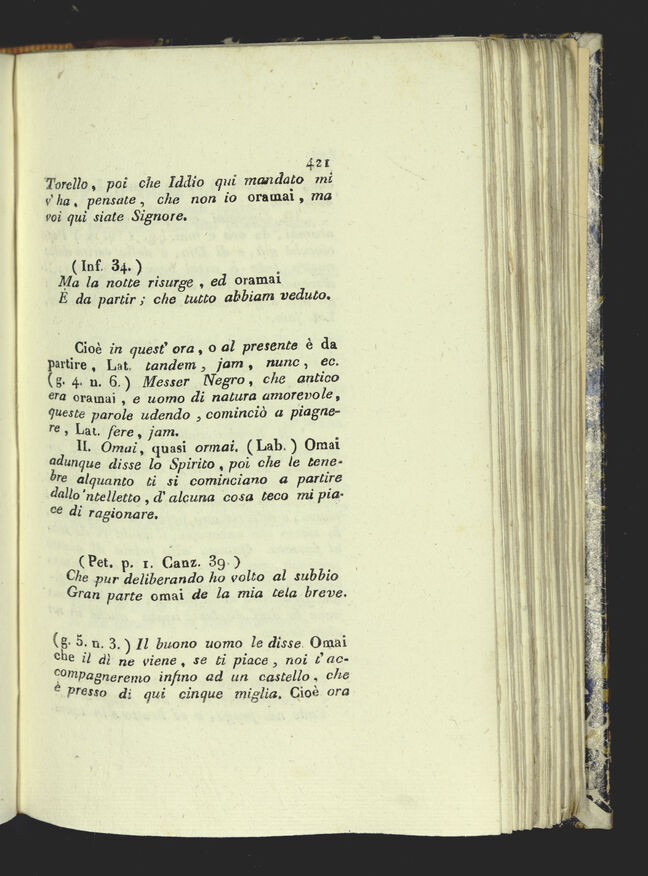 421
Torello, poi che Iddio qui mandato mi
v'ha, pensate, che non io oramai, ma
voi qui siate Signore.
(Inf. 34.)
Ma la notte risurge, ed oramai
È da partir; che tutto abbiam veduto.
Cioè in quest' ora, o al presente è da
partire, Lat. tandem, jam, nunc, ec.
(g. 4. n. 6.) Messer Negro, che antico
era oramai, e uomo di natura amorevole,
queste parole udendo, cominciò a piagne-
re, Lat. fere, jam.
II. Omai, quasi ormai. (Lab.) Omai
adunque disse lo Spirito, poi che le tene-
bre alquanto ti si cominciano a partire
dallo 'ntelletto, d' alcuna cosa teco mi pia-
ce di ragionare.
(Pet. p. 1. Canz. 39.)
Che pur deliberando ho volto al subbio
Gran parte omai de la mia tela breve.
(g. 5. n. 3.) Il buono uomo le disse Omai
che il dì ne viene, se ti piace, noi t'ac-
compagneremo infino ad un castello, che
è presso di qui cinque miglia. Cioè ora